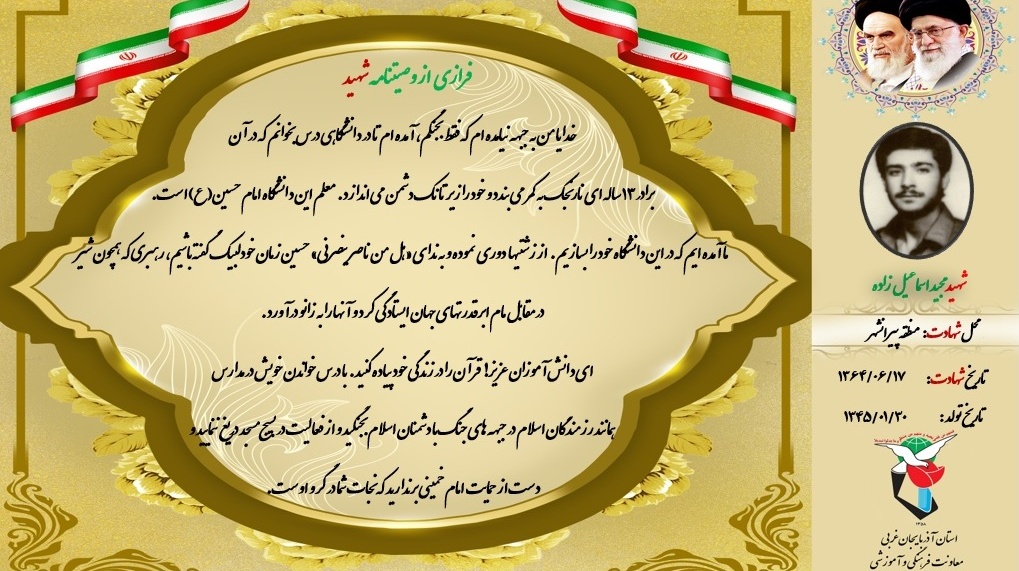 فرازی از وصیتنامه شهید
خدایا من به جبهه نیامده ام که فقط بجنگم، آمده ام تا در دانشگاهی درس بخوانم که در آن
برادر ۱۳ساله ای نارنجک به کمر می بندد و خود را زیر تانک دشمن می اندازد. معلم این دانشگاه امام حسین(ع) است.
ما آمده ایم که در این دانشگاه خود را بسازیم. از زشتیها دوری نموده و به ندای «هل من ناصر ینصرنی» حسین زمان خود لبیک گفته باشیم، رهبری که همچون شیر
در مقابل مام ابرقدرتهای جهان ایستادگی کرد و آنها را به زانو درآورد.
ای دانش آموزان عزیز! قرآن را در زندگی خود پیاده کنید. با درس خواندن خویش در مدارس
همانند رزمندگان اسلام در جبهه های جنگ با دشمنان اسلام بجنگید و از فعالیت در بسیج مسجد دریغ ننمایید و
دست از حمایت امام خمینی برندارید که نجات شما در گرو اوست.
شهید مجید اسماعیل زاده
محل شهادت: منطقه پیرانشهر
تاریخ شهادت: ۱۳۶۴/۰۶/۱۷
تاریخ تولد: ۱۳۴۵/۰۱/۳۰
۱۳۵۸
استان آذربایجان غربی
معاونت فرهنگی و آموزشی